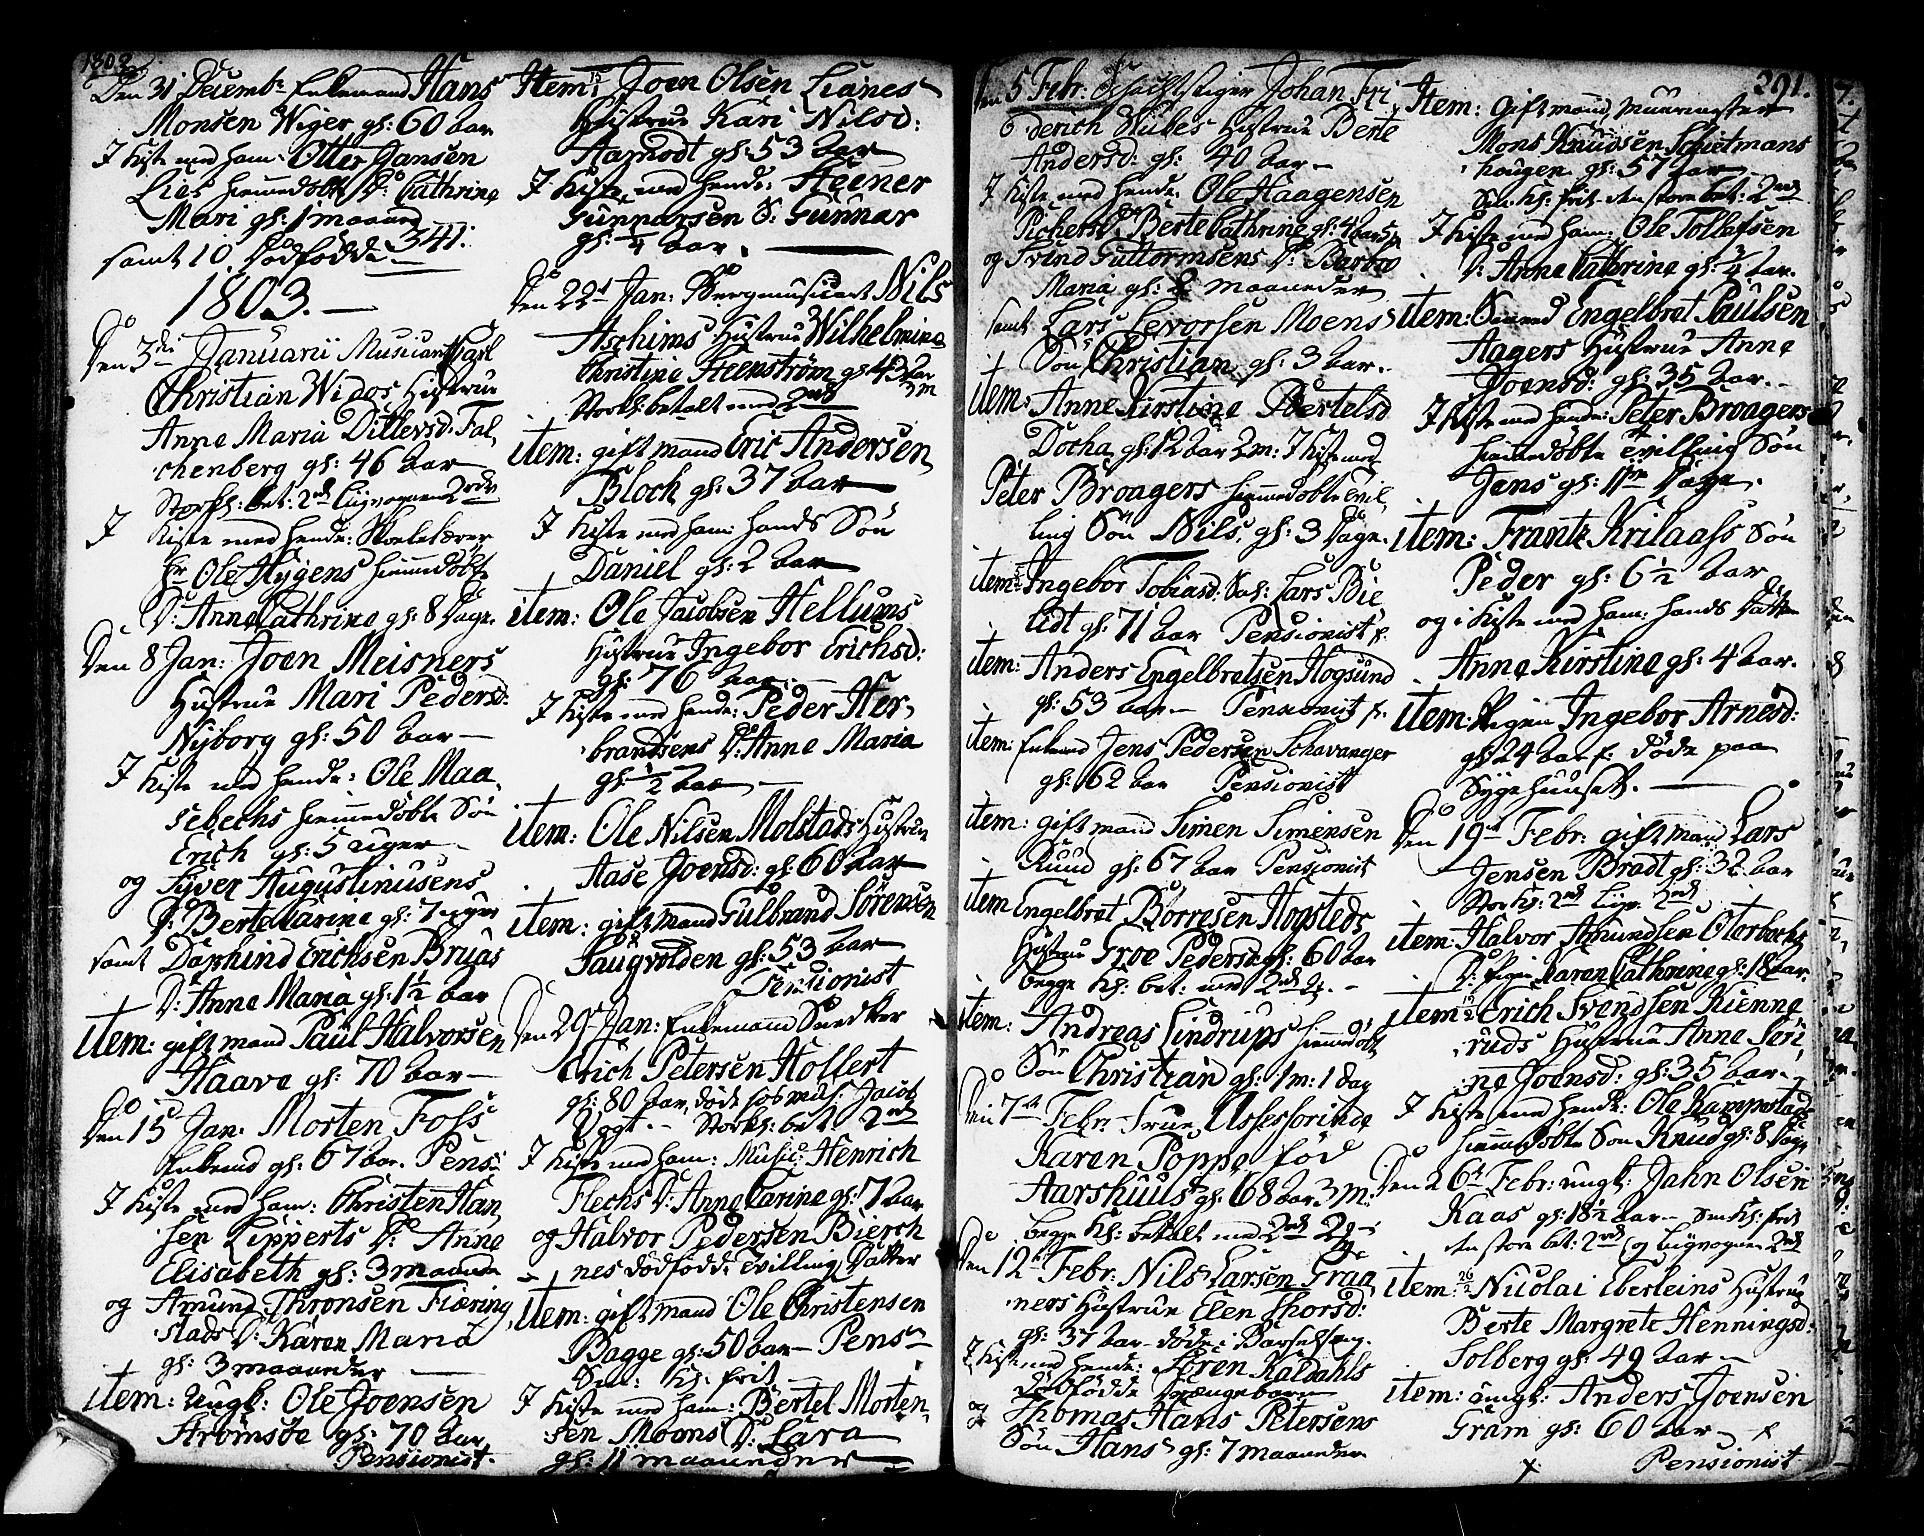 1802.
Den 31 Decembr Enkemand Hans
Monsen Wiger gl: 60 Aar
I Kiste med ham: Otter Hansen
Lies hiemmedøbte D: Cathrine
Mari gl: 1 maaned
samt 10 dødfødde 341.
1803.
Den 3die Januarii Musicant Carl
Christian Widos Hustrue
Anne Maria Ditlevsd: Fal-
chenberg gl: 46 Aar
Storkl: bet: 2rdl Liigvognen 2rdl
I Kiste med hende: Skolelærer
Hr Ole Hygens hiemmedøbte
D: Anne Cathrine gl: 8 Dage.
Den 8 Jan: Joen Meisners
Hustrue Mari Pedersd:
Nyborg gl: 50 Aar
I Kiste med hende: Ole Maa-
sebechs hiemmedøbte Søn
Erich gl: 5 uger
og Syver Augustinusens
D: Berte Carine gl: 7 uger
samt Daphind Erichsen Bruas
D: Anne Maria gl: 1½ Aar
item: gift mand Paul Halvorsen
Haave gl: 70 Aar
Den 15 Jan: Morten Foss
Enkemd gl: 67 Aar. Pens:
I Kiste med ham: Christen Han-
sen Lipperts D: Anne
Elisabeth gl: 3 maaneder
og Amund Thronsen Fiæring-
stads D: Karen Maria
gl: 3 maaneder
item: Ungk: Ole Joensen
Strømsøe gl: 70 Aar
Pensionist.
Item: Joen Olsen Lianes
Hustrue Kari Nilsd:
Aamodt gl: 53 Aar
I Kiste med hende: Steener
Gunnarsen S: Gunnar
gl: ¼ Aar.
Den 22d Jan: Bergmusicant Nils
Aschims Hustrue Wilhelmine
Christine Steenstrøm gl: 43 Aar
3m
Storkl: betalt med 2rdl
item: gift mand Eric Andersen
Bloch gl: 37 Aar
I Kiste med ham: hands Søn
Daniel gl: 2 Aar
item: Ole Jacobsen Hellums
Hustrue Ingebor Erichsd:
gl: 76 Aar.
I Kiste med hende: Peder Her-
brandsens D: Anne Maria
gl: ½ Aar
item: Ole Nilsen Molstads Hustrue
Aase Joensd: gl: 60 Aar
item: gift mand Gulbrand Sørensen
Saugvolden gl: 53 Aar
Pensionist
Den 29 Jan: Enkemann Snedker
Erich Petersen Hollert
gl: 80 Aar, døde hos Jacob
Vogt. Storkl: bet: 2rdl
I Kiste med ham: Music: Henrich
Flechs D: Anne Carine gl: 7 Aar
og Halvor Pedersen Bierch-
nes dødfødde Tvilling Datter
item: gift mand Ole Christensen
Bagge gl: 50 Aar Pensn
Sm: Kl: frit
I Kiste med ham: Bertel Morten-
sen Moens D: Lara
gl: 11 maaneder
291.
Den 5 Febr: Schachtstiger Johan Fri-
derich Wibes Hustrue Berte
Andersd: gl: 40 Aar
I Kiste med hende: Ole Haagensen
Berte Cathrine gl: 4 Aar
og Svend Guttormsens D: Barbro
Maria gl: 2 maaneder
samt Lars Levorsen Moens
Søn Christian gl: 3 Aar.
item: Anne Kirstine Bertelsd
Docha gl: 12 Aar 2m: I Kiste med
Peter Broagers hiemmedøbte Tvil-
ling Søn Nils, gl: 3 Dage.
item: Ingebor Tobiasd: Sal: Lars Bie
Lidt gl: 71 Aar Pensionist
item: Anders Engelbretsen Hogsund
gl: 53 Aar Pensionist
item: Enkemd Jens Pedersen Schavanger
gl: 62 Aar Pensionist
item: gift mand Simen Simensen
Ruud gl: 67 Aar Pensionist
item Engelbret Borresen Hogsteds
Hustrue Groe Pedersd gl: 60 Aar
begge Kl: bet: med 2rdl
item: Andreas Lindrups hiemmedøbte
Søn Christian gl: 1m: 1 dag
Den 7de Febr: Frue Assessorinde
Karen Poppe fød
Aarshuus gl: 68 Aar 3m:
begge Kl: betalt med 2rdl
Den 12 Febr: Nils Larsen Gran-
ners Hustrue Elen Thorsd:
gl: 37 Aar døde i Barselseng.
I Kiste med hende: Søren Kaldahls
dødfødde Drængebarn
og Thomas Hans Petersens
Søn Hans gl: 7 maaneder
Item: Gift mand, Muurmester
Mons Knudsen Schietmans
hougen gl: 57 Aar
Sm: Kl: frit den store bet: 2rdl
I Kiste med ham: Ole Tollefsen
D: Anne Cathrine gl: ¾ Aar.
item: Engelbret Paulsen
Aagers Hustrue Anne
Joensd: gl: 35 Aar.
I Kiste med hende: Peter Broagers
hiemmedøbte Tvilling Søn
Jens gl: 11 Dage.
item: Frantz Krilaass Søn
Peder gl: 6½ Aar
og i Kiste med ham: hands Datter
Anne Kirstine gl: 4 Aar.
item: Pigen Ingebor Arnesd:
gl: 24 Aar døde paa
Sygehuuset.
Den 19d Febr: gift mand Lars
Jensen Bradt gl: 32 Aar
Stor Kl: 2rdl Liigv: 2rdl
item: Halvor Amundsen Oterbechs
D: Pigen Karen Cathrine gl: 18 Aar.
item: Erich Svendsen Kienne-
ruds Hustrue Anne Siri-
ne Joensd: gl: 35 Aar
I Kiste med hende: Ole Kampestads
hiemmedøbte Søn Knud gl: 8 Dage
Den 26 Febr: ungk: Jahn Olsen
Kaas gl: 18½ Aar Sm: Kl: frit
den store bet: 2rdl og Liigvognen 2rdl
item: Nicolai Eberleins Hustrue
Berte Margrete Henningsd:
Solberg gl: 49 Aar
item: ungk: Anders Joensen
Gram gl: 60 Aar
Pensionist